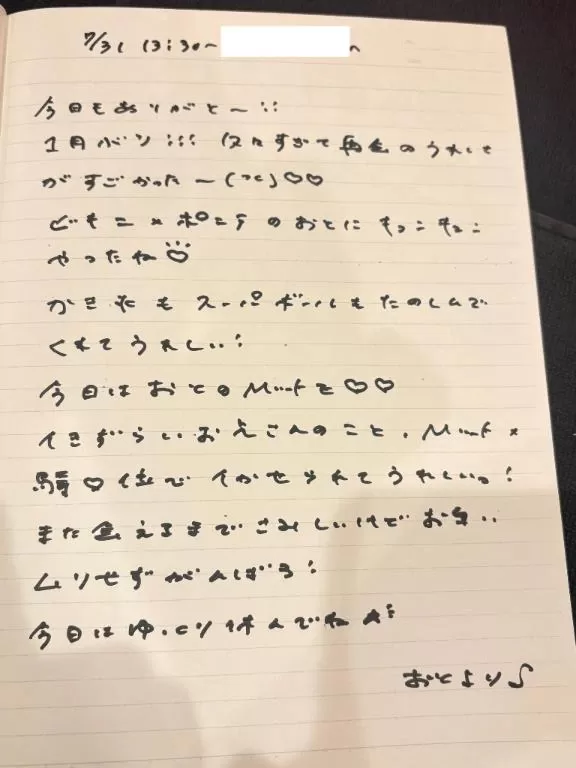 7/31 13:30〜
今日もありがと〜!!
1月ブリ!!! 久々すぎて再会のうれしさ
がすごかった〜 ♡♡
のおとにキュンキュン
やったね♡
かき氷もスーパーボールもたのしんで
くれてうれしい!
今日はおとのMットと♡♡
イきずらいお兄さんのこと、Mット×
騎♡位でイかせられてうれしいっ!
また会えるまでさみしいけどお互い
ムリせずがんばろ!
今日はゆっくり休んでね
おとより